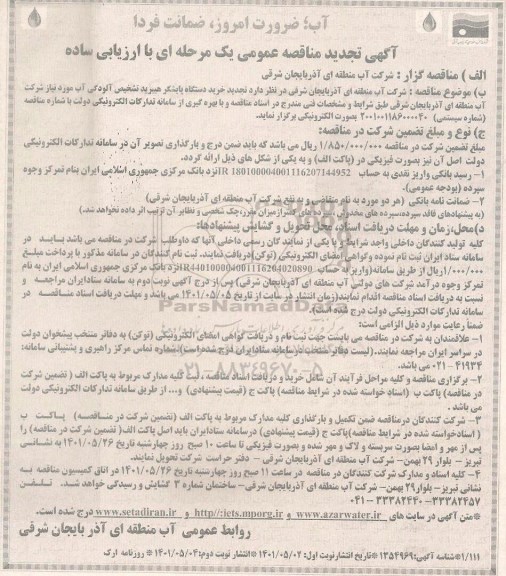 آب؛ ضرورت امروز، ضمانت فردا
آگهی تجدید مناقصه عمومی یک مرحله ای با ارزیابی ساده
الف ) مناقصه گزار : شرکت آب منطقه ای آذربایجان شرقی
ب) موضوع مناقصه : شرکت آب منطقه ای آذربایجان شرقی در نظر دارد تجدید خرید دستگاه پایشگر هیبرید تشخیص آلودگی آب مورد نیاز شرکت
آب منطقه ای آذربایجان شرقی طبق شرایط و مشخصات فنی مندرج در اسناد مناقصه و با بهره گیری از سامانه تدارکات الکترونیکی دولت با شماره مناقصه
(شماره سیستمی) ۲۰۰۱۰۰۱۱۸۶۰۰۰۰۴۰ بصورت الکترونیکی برگزار نماید.
ج) نوع و مبلغ تضمین شرکت در مناقصه:
مبلغ تضمین شرکت در مناقصه ۱/۸۵۰/۰۰۰/۰۰۰ ریال می باشد که باید ضمن درج و بارگذاری تصویر آن در سامانه تدارکات الکترونیکی
دولت اصل آن نیز بصورت فیزیکی در (پاکت الف) و به یکی از شکل های ذیل ارائه گردد.
۱- رسید بانکی واریز نقدی به حساب IR 180100004001116207144952 نزد بانک مرکزی جمهوری اسلامی ایران بنام تمرکز وجوه
سپرده (بودجه عمومی).
۲- ضمانت نامه بانکی (هر دو مورد به نام متقاضی و به نفع شرکت آب منطقه ای آذربایجان شرقی)
(به پیشنهادهای فاقد سپرده،سپرده های مخدوش، سپرده های کمتر از میزان مقرر،چک شخصی و نظایر آن ترتیب اثر داده نخواهد شد.)
د)محل،زمان و مهلت دریافت اسناد، محل تحویل و گشایش پیشنهادها:
کلیه تولید کنندگان داخلی واجد شرایط و یا یکی از نمایند گان رسمی داخلی آنها که داوطلب شرکت در مناقصه می باشد بایـد در
سامانه ستاد ایران ثبت نام نموده و گواهی امضای الکترونیکی (توکن)دریافت نمایند. ثبت نام کنندگان در سامانه مذکور با پرداخت مبلغ
۱/۰۰۰/۰۰۰ریال از طریق سامانه(واریز به حساب IR440100004001116204020890 نزد بانک مرکزی جمهوری اسلامی ایران به نام
تمرکز وجوه درآمد شرکت های دولتی آب منطقه ای آذربایجان شرقی) پس از درج آگهی نوبت دوم به سامانه ستاد ایران مراجعه و
نسبت به دریافت اسناد مناقصه اقدام نمایند(زمان انتشار در سایت از تاریخ ۱۴۰۱/۰۵/۰۵ می باشد و مهلت دریافت اسناد مناقصه در
سامانه تدارکات الکترونیکی دولت درج شده است).
ضمنا رعایت موارد ذیل الزامی است:
۱- علاقمندان به شرکت در مناقصه می بایست جهت ثبت نام و دریافت گواهی امضای الکترونیکی (توکن) به دفاتر منتخب پیشخوان دولت
در سراسر ایران مراجعه نمایند. (لیست دفاتر منتخب در سامانه ستاد ایران درج شده است).شماره تماس مرکز راهبری و پشتیبانی سامانه:
۴۱۹۳۴-۰۲۱ می باشد.
۲- برگزاری مناقصه و کلیه مراحل فرآیند آن شامل خرید و دریافت اسناد مناقصه، ثبت کلیه مدارک مربوط به پاکت الف ( تضمین شرکت
در مناقصه) پاکت ب (اسناد خواسته شده در شرایط مناقصه) پاکت ج (قیمت پیشنهادی) و... از طریق سامانه تدارکات الکترونیکی دولت
می باشد .
۳- شرکت کنندگان در مناقصه ضمن تکمیل و بارگذاری کلیه مدارک مربوط به پاکت الف (تضمین شرکت در مناقصـه) پاکـت ب
( اسناد خواسته شده در شرایط مناقصه) پاکت ج (قیمت پیشنهادی) در سامانه ستاد ایران باید اصل پاکت الف( تضمین شرکت در مناقصه) را
پس از مهر و امضا بصورت سربسته و لاک و مهر شده و بصورت فیزیکی تا ساعت ۱۰ صبح روز چهارشنبه تاریخ ۱۴۰۱/۰۵/۲۶ به نشانـی
تبریز – بلوار ۲۹ بهمن- شرکت آب منطقه ای آذربایجان شرقی – دفتر حراست شرکت تحویل نمایند.
۴- کلیه اسناد و مدارک شرکت کنندگان در مناقصه در ساعت ۱۱ صبح روز چهارشنبه تاریخ ۱۴۰۱/۰۵/۲۶ در اتاق کمیسیون مناقصه به
نشانی تبریز- بلوار۲۹ بهمن- شرکت آب منطقه ای آذربایجان شرقی- ساختمان شماره ۳ گشایش و رسیدگی خواهد شـد. تـلـفـن
۳۳۳۸۲۴۵۷-۳۳۳۸۲۴۴۰ -۰۴۱
*متن آگهی در سایت های www.azarwater.ir و http:/:iets.mporg.ir و www.setadiran.ir درج شده است.
روابط عمومی آب منطقه ای آذر بایجان شرقی
۱/۱۱۱*شناسه آگهی:۱۳۵۴۹۶۹*تاریخ انتشار نوبت اول: ۱۴۰۱/۰۵/۰۲ *انتشار نوبت دوم:۱۴۰۱/۰۵/۰۴ *روزنامه ارک
ParsNamadData
۰۲۱-۸۸۳۴۹۶۷۰-۵